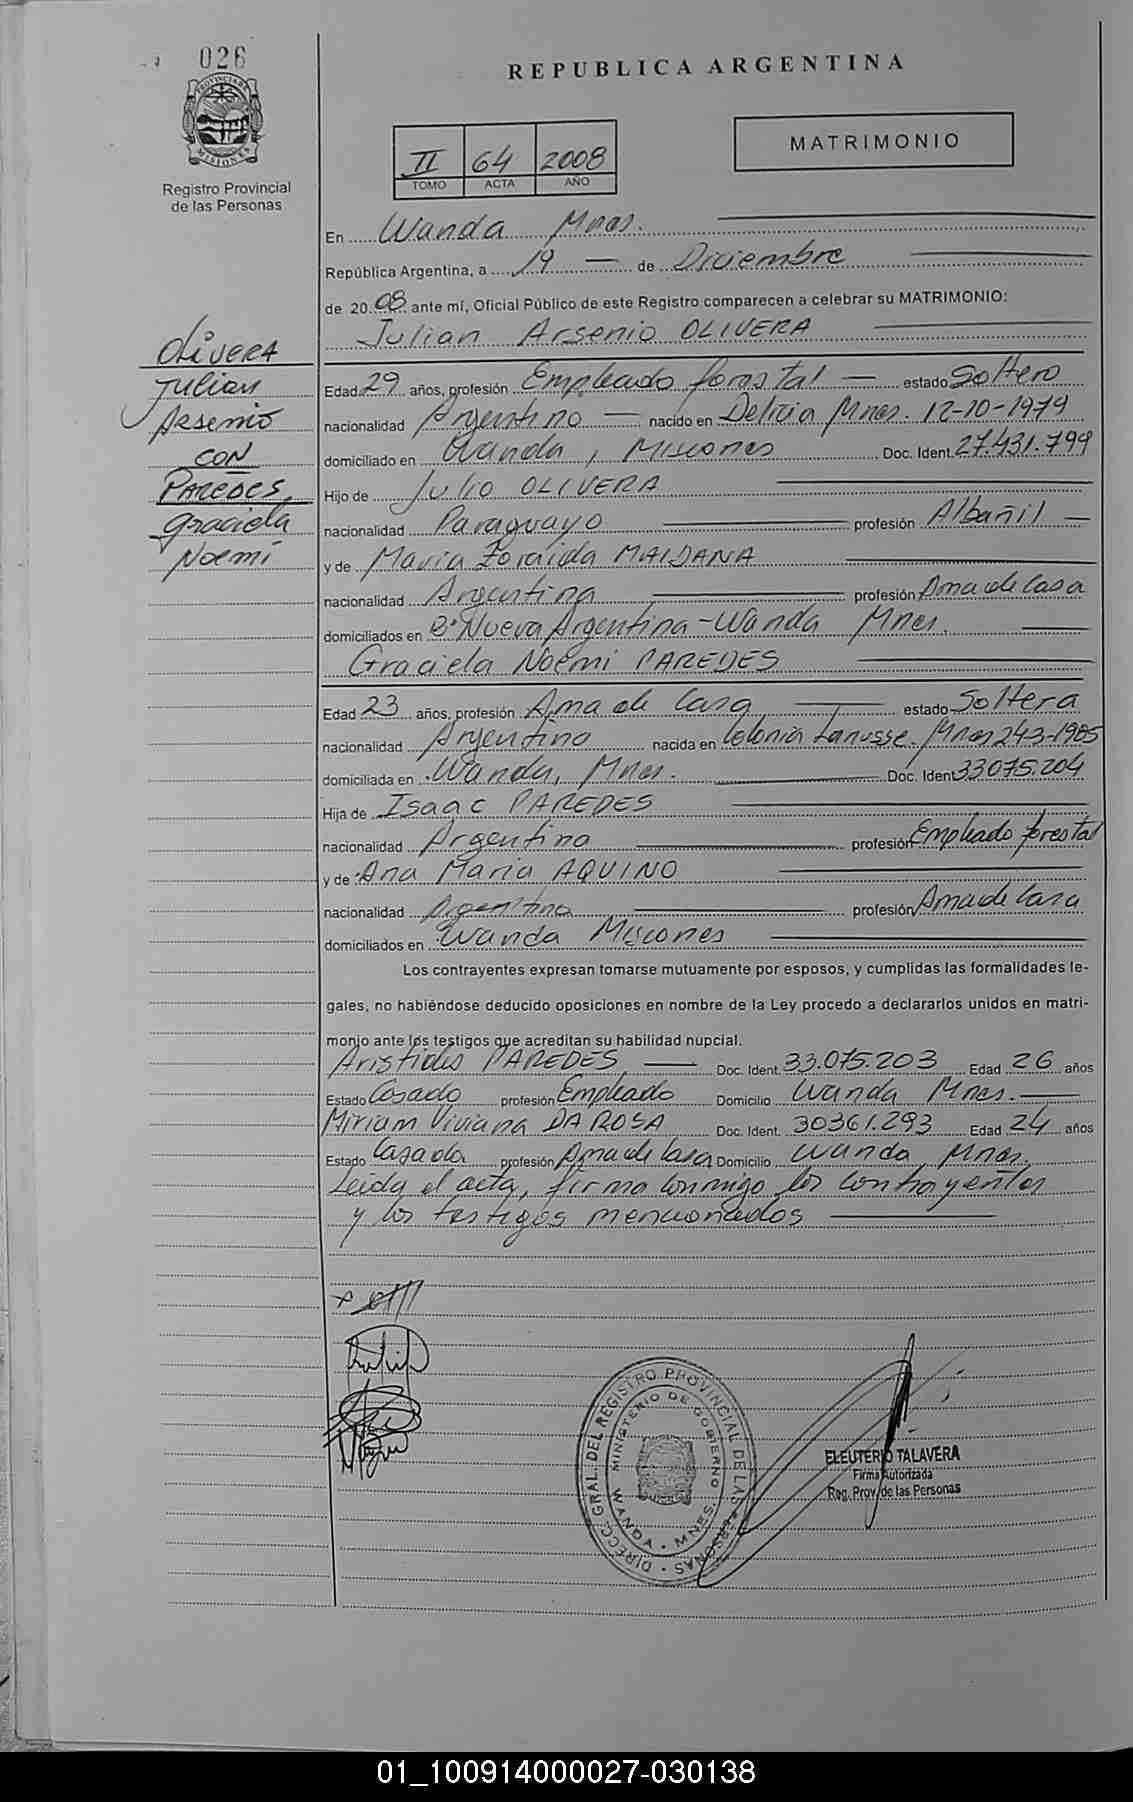 026
REPUBLICA ARGENTINA
PROVINCIA DE MISIONES
Registro Provincial
de las Personas
II 64 2008
TOMO ACTA AÑO
MATRIMONIO
En Wanda Mnes.
República Argentina, a 19 de Diciembre
de 2008 ante mí, Oficial Público de este Registro comparecen a celebrar su MATRIMONIO:
Julian Arsenio OLIVERA
OLIVERA
Julian
Arsenio
CON
PAREDES,
Graciela
Noemí
Edad 29 años, profesión Empleado forestal estado Soltero
nacionalidad Argentino nacido en Delicia Mnes. 12-10-1979
domiciliado en Wanda, Misiones Doc. Ident. 27.431.799
Hijo de Julio OLIVERA
nacionalidad Paraguayo profesión Albañil
y de Maria Zoraida MAIDANA
nacionalidad Argentina profesión Ama de Casa
domiciliados en Bº Nueva Argentina - Wanda Mnes.
Graciela Noemi PAREDES
Edad 23 años, profesión Ama de Casa estado Soltera
nacionalidad Argentino nacida en Colonia Lanusse. Mnes 24-3-1985
domiciliada en Wanda, Mnes. Doc. Ident 33.075.204
Hija de Isaac PAREDES
nacionalidad Argentino profesión Empleado forestal
y de Ana Maria AQUINO
nacionalidad Argentina profesión Ama de Casa
domiciliados en Wanda Misiones
Los contrayentes expresan tomarse mutuamente por esposos, y cumplidas las formalidades le-
gales, no habiéndose deducido oposiciones en nombre de la Ley procedo a declararlos unidos en matri-
monio ante los testigos que acreditan su habilidad nupcial.
Aristides PAREDES, Doc. Ident. 33.075.203 Edad 26 años
Estado Casado profesión Empleado Domicilio Wanda Mnes.
Miriam Viviana DA ROSA Doc. Ident. 30361.293 Edad 24 años
Estado Casada profesión Ama de Casa Domicilio Wanda Mnes.
Leida el acta, firma conmigo los contrayentes
y los testigos mencionados
DIRECC. GRAL. DEL REGISTRO PROVINCIAL DE LAS PERSONAS
MINISTERIO DE GOBIERNO
WANDA - MNES.
ELEUTERIO TALAVERA
Firma Autorizada
Reg. Prov. de las Personas
01_100914000027-030138